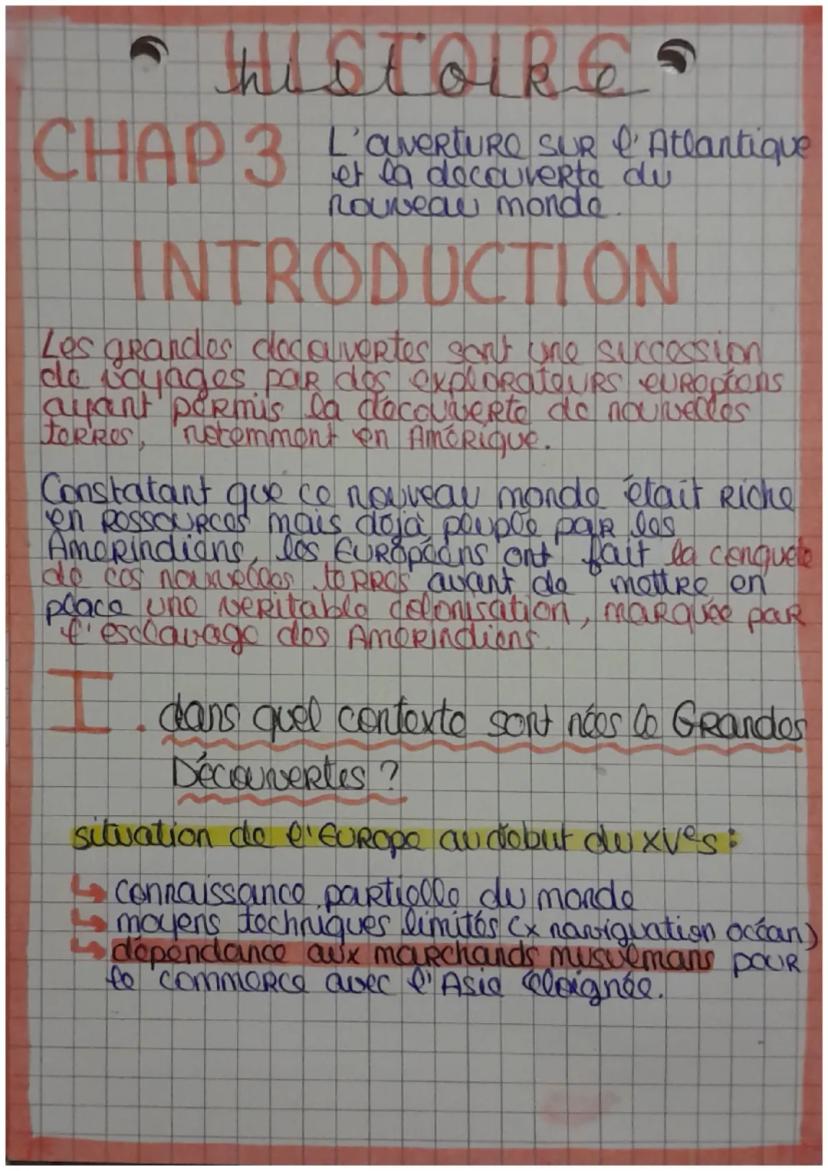 HISTOIRE
histoire
CHAP 3
L'ouverture sur l'Atlantique
et la decouverte du
nouveau monde.
INTRODUCTION
Les grandes decouvertes sont une succession
de voyages par des explorateurs européens
ayant permis la découverte de nouvelles
terres, notemment en Amérique.
Constatant que ce nouveau monde était riche
en ressources mais déjà peuplée par les
Amérindians, les Européens ont fait la conquete
de ces nouvelles terres avant de mettre en
place une veritable colonisation, marquée par
l'esclavage des Amérindiens.
I. dans quel contexte sont nées le Grandes
Découvertes ?
situation de l'Europe au début du XVe s :
↳ connaissance partielle du monde
↳ moyens techniques limités (x naviguation océan)
↳ dépendance aux marchands musulmans pour
le commerce avec l'Asie éloignée.